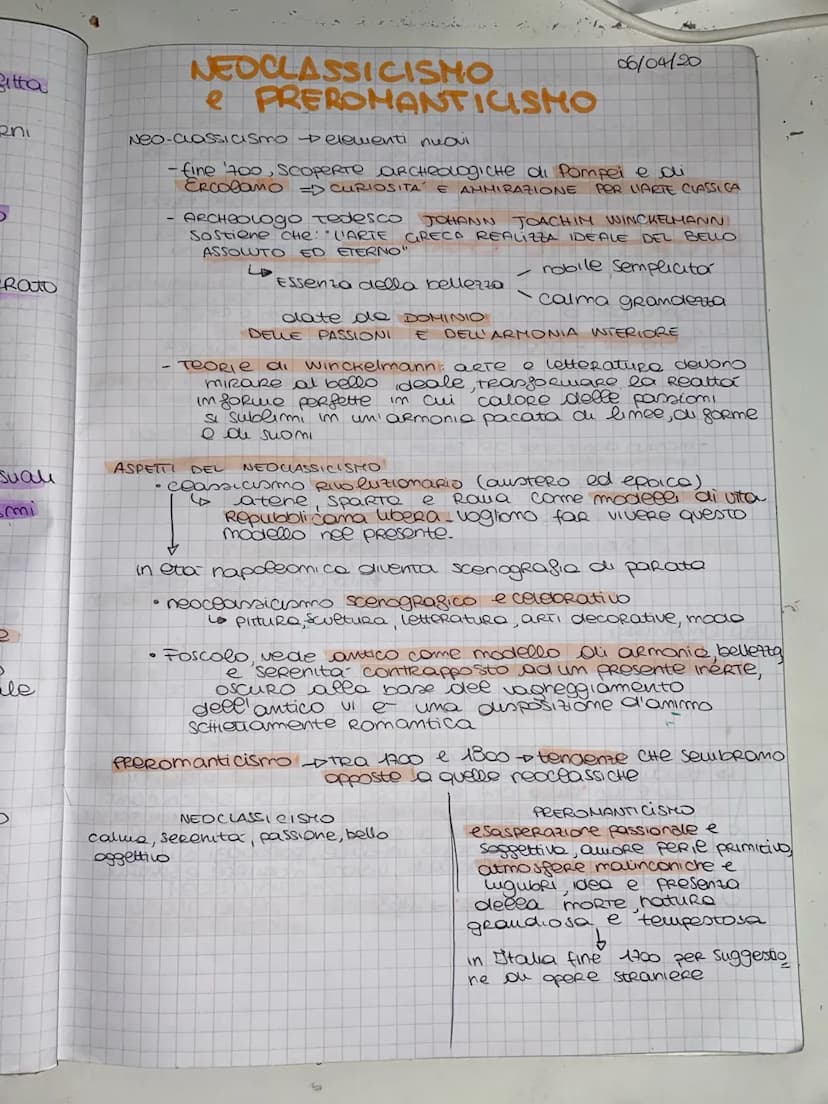 06/04/20
NEOCLASSICISMO
e PREROMANTICISMO
NEO-CLASSICISMO → elementi nuovi
- fine '700, SCOPERTE ARCHEOLOGICHE di Pompei e di
ERCOLANO => CURIOSITA' E AMMIRAZIONE PER L'ARTE CLASSICA
- ARCHEOLOGO TEDESCO JOHANN JOACHIM WINCKELMANN
Sostiene che: "L'ARTE GRECA REALIZZA IDEALE DEL BELLO
ASSOLUTO ED ETERNO"
↳ Essenza della bellezza
nobile semplicità
calma grandezza
date da DOMINIO
DELLE PASSIONI E DELL'ARMONIA INTERIORE
- TEORIE di Winckelmann: arte e letteratura devono
mirare al bello ideale, trasformare la realtà
in forme perfette in cui calore delle passioni
si sublimi in un'armonia pacata di linee, di forme
e di suoni
ASPETTI DEL NEOCLASSICISMO
• classicismo rivoluzionario (austero ed eroico)
↳ atene, sparta e Roma come modelli di vita
Repubblicana libera - vogliono far vivere questo
modello nel presente.
in età napoleonica diventa scenografia di parata
• neoclassicismo scenografico e celebrativo
↳ pittura, scultura, letteratura, arti decorative, moda
• Foscolo, vede antico come modello di armonia, bellezza
e serenità contrapposto ad un presente inerte,
oscuro alla base del vagheggiamento
dell'antico vi è una disposizione d'animo
schiettamente romantica
PREROMANTICISMO → TRA 1700 e 1800 → tendenze CHE sembrano
opposte a quelle neoclassiche
NEOCLASSICISMO
calma, serenità, passione, bello
oggettivo
PREROMANTICISMO
esasperazione passionale e
soggettiva, amore per il primitivo,
atmosfere malinconiche e
lugubri, idea e presenza
della morte, natura
grandiosa e tempestosa
↓
in Italia fine 1700 per suggestio
ne di opere straniere